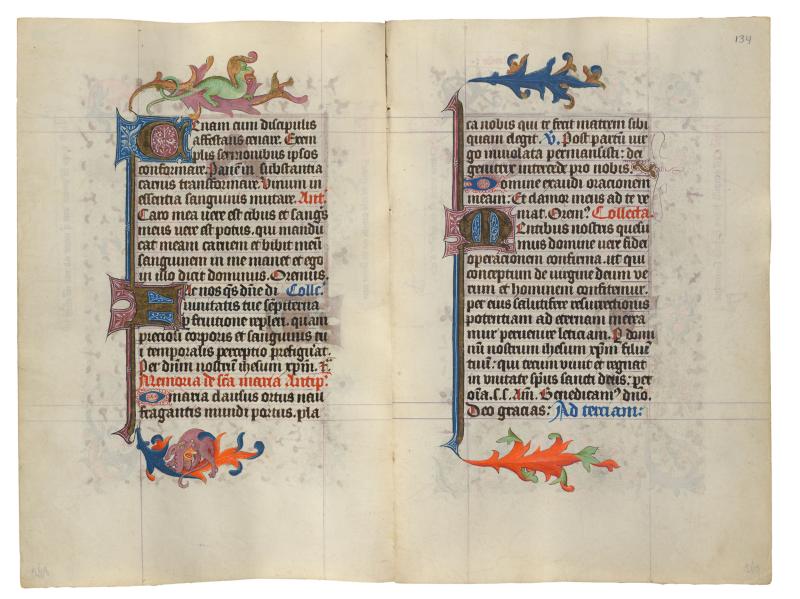 Cenam cum discipulis
affectans cenare. Exem
plis sermonibus ipsos
conformare. Panem in substantia
carnis transformare. Vinum in
essentia sanguinis mutare. Ant.
Caro mea vere est cibus et sangs
meus vere est potus. qui mandu
cat meam carnem et bibit meū
sanguinem in me manet et ego
in illo dicit dominus. Oremus.
Fac nos qs dn̄e di Coll̄c.
uinitatis tue sempiterna
fruitione repleri. quam
preciosi corporis et sanguinis tu
i temporalis perceptio prefigurat.
Per dn̄m nostrū ihesum xpm̄.
Memoria de scā maria Antip̄.
O maria clausus ortus nau
fragantis mundi portus. pla
134
ca nobis qui te fecit matrem sibi
quam elegit. V. Post partū vir
go inuiolata permansisti: dei
genitrix intercede pro nobis.
Domine exaudi oracionem
meam: Et clamor meus ad te ve
niat. Orem̄. Collecta.
Mentibus nostris quesu
mus domine vere fidei
operacionem confirma. ut qui
conceptum de uirgine deum ve
rum et hominem confitemur.
per eius salutifere resurrectionis
potentiam ad eternam merea
mur peruenire leticiam. P domi
nū nostrum ihesum xpm̄ filium
tuū: qui tecum viuit et regnat
in vnitate spūs sancti deus: per
oīa.s.s. Am̄. Benedicam⁹ dn̄o.
Deo gracias: Ad terciam: